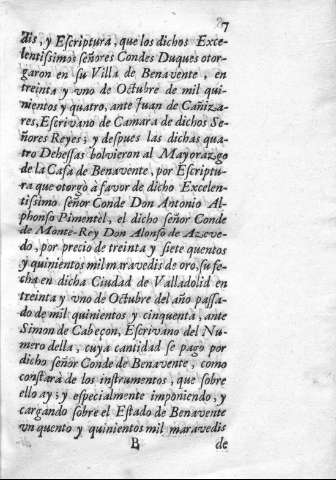 7
dis, y Escriptura, que los dichos Exce-
lentissimos señores Condes Duques otor-
garon en su Villa de Benavente, en
treinta y vno de Octubre de mil qui-
nientos y quatro, ante Juan de Cañiza-
res, Escrivano de Camara de dichos Se-
ñores Reyes; y despues las dichas qua-
tro Dehessas bolvieron al Mayorazgo
de la Casa de Benavente, por Escriptu-
ra que otorgò à favor de dicho Excelen-
tissimo señor Conde Don Antonio Al-
phonso Pimentèl, el dicho señor Conde
de Monte-Rey Don Alonso de Azeve-
do, por precio de treinta y siete quentos
y quinientos mil maravedis de oro, su fe-
cha en dicha Ciudad de Valladolid en
treinta y vno de Octubre del año passa-
do de mil quinientos y cinquenta, ante
Simon de Cabeçon, Escrivano del Nu-
mero della, cuya cantidad se pagò por
dicho señor Conde de Benavente, como
constarà de los instrumentos, que sobre
ello ay; y especialmente imponiendo, y
cargando sobre el Estado de Benavente
vn quento y quinientos mil maravedis
B de